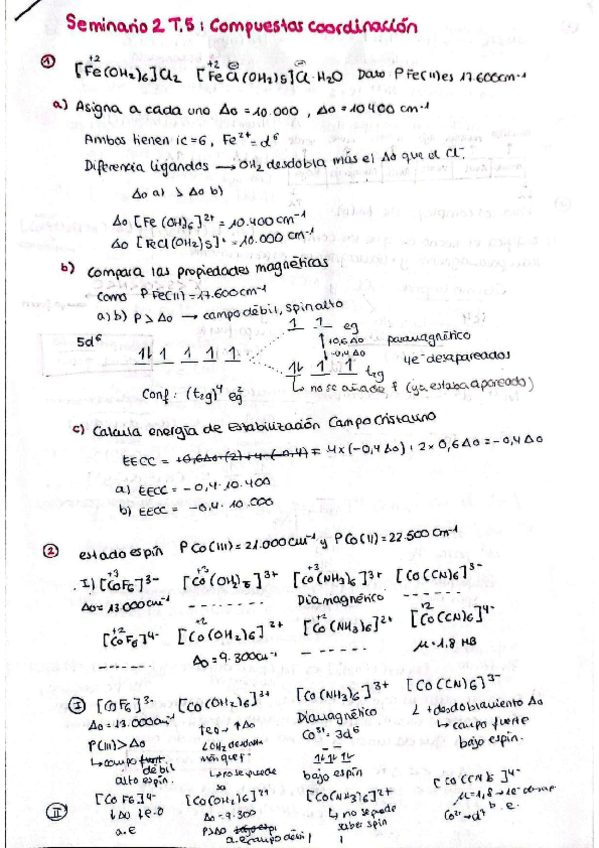 Seminario 2 T.5: Compuestos coordinación
① [Fe(OH₂)₆]Cl₂ [FeCl(OH₂)₅]Cl·H₂O Dato P Fe(II) es 17.600cm⁻¹
+2 +2
a) Asigna a cada uno Δo = 10.000, Δo = 10400 cm⁻¹
Ambos tienen ic=6, Fe²⁺=d⁶
Diferencia ligandos → OH₂ desdobla más el Δo que el Cl⁻
Δo a) > Δo b)
Δo [Fe(OH)₆]²⁺ = 10.400 cm⁻¹
Δo [FeCl(OH₂)₅]⁺ = 10.000 cm⁻¹
b) Compara las propiedades magnéticas
Como P Fe(II) = 17.600cm⁻¹
a) b) P > Δo → campo débil, spin alto
1 1 eg
5d⁶ +0,6Δo paramagnético
1l 1 1 1 1 -0,4Δo 4e⁻ desapareados
1l 1 1 t₂g
↳ no se añade P (ya estaba apareado)
Conf: (t₂g)⁴ eg²
c) Calcula energía de Estabilización Campo Cristalino
EECC = +0,6Δo·(2)+4·(-0,4) = 4×(-0,4Δo) + 2×0,6Δo = -0,4Δo
a) EECC = -0,4·10.400
b) EECC = -0,4·10.000
② estado espín P Co(III) = 21.000cm⁻¹ y P Co(II) = 22.500cm⁻¹
+3 +3
I) [CoF₆]³⁻ [Co(OH)₆]³⁺ [Co(NH₃)₆]³⁺ [Co(CN)₆]³⁻
Δo = 13000cm⁻¹ ------- Diamagnético -------
+2 +2 +2 +2
[CoF₆]⁴⁻ [Co(OH₂)₆]²⁺ [Co(NH₃)₆]²⁺ [Co(CN)₆]⁴⁻
------ Δo = 9.300cm⁻¹ ------ μ = 1,8 MB
Ⓘ [CoF₆]³⁻ [Co(OH₂)₆]³⁺ [Co(NH₃)₆]³⁺ [Co(CN)₆]³⁻
Δo = 13.000cm⁻¹ Diamagnético + desdoblamiento Δo
P(III) > Δo Co³⁺ = 3d⁶ ↳ campo fuerte
↳ campo débil OH₂ desdobla más que F⁻ 1l 1l 1l bajo espín.
alto espín. ↳ no se puede saber bajo espín
Ⓘ Ⓘ [CoF₆]⁴⁻ [Co(OH₂)₆]²⁺ [Co(NH₃)₆]²⁺ [Co(CN)₆]⁴⁻
Δo = 9.300 ↳ no se puede μ = 1,8 → 1e⁻ desap
a.e P>Δo campo débil saber spin Co²⁺ → d⁷ b.e.